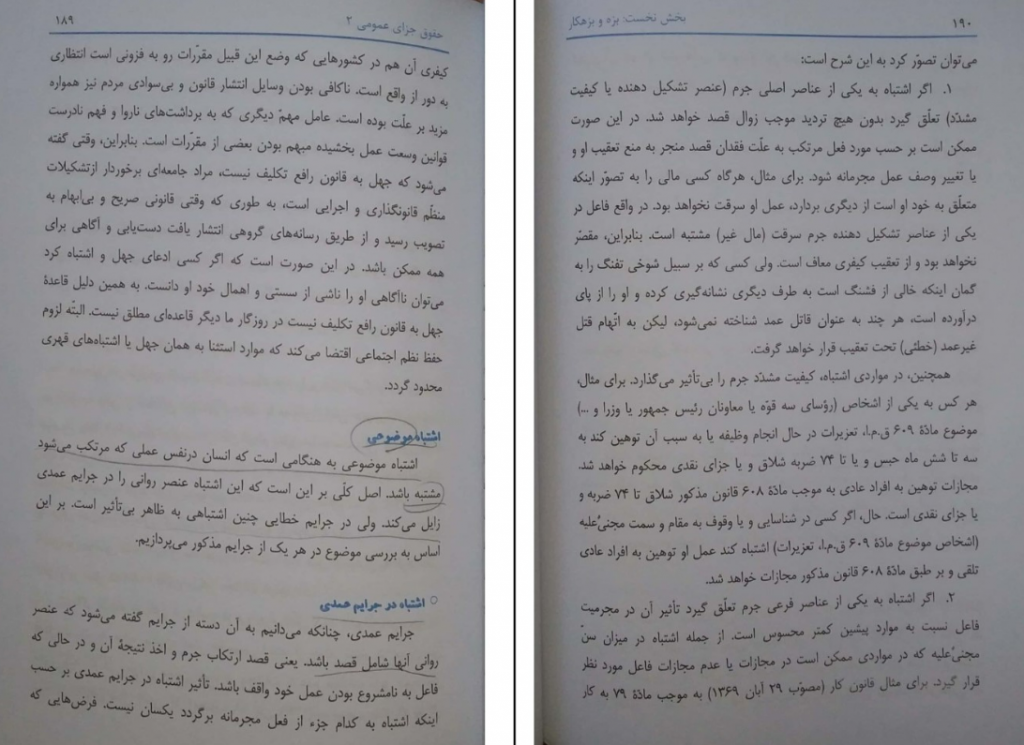 حقوق جزای عمومی ۲ ۱۸۹
کیفری آن هم در کشورهایی که وضع این قبیل مقرّرات رو به فزونی است انتظاری
به دور از واقع است. ناکافی بودن وسایل انتشار قانون و بی‌سوادی مردم نیز همواره
مزید بر علّت بوده است. عامل مهمّ دیگری که به برداشت‌های ناروا و فهم نادرست
قوانین وسعت عمل بخشیده مبهم بودن بعضی از مقرّرات است. بنابراین، وقتی گفته
می‌شود که جهل به قانون رافع تکلیف نیست، مراد جامعه‌ای برخوردار ازتشکیلات
منظّم قانونگذاری و اجرایی است، به طوری که وقتی قانونی صریح و بی‌ابهام به
تصویب رسید و از طریق رسانه‌های گروهی انتشار یافت دست‌یابی و آگاهی برای
همه ممکن باشد. در این صورت است که اگر کسی ادعای جهل و اشتباه کرد
می‌توان ناآگاهی او را ناشی از سستی و اهمال خود او دانست. به همین دلیل قاعدهٔ
جهل به قانون رافع تکلیف نیست در روزگار ما دیگر قاعده‌ای مطلق نیست. البتّه لزوم
حفظ نظم اجتماعی اقتضا می‌کند که موارد استثنا به همان جهل یا اشتباه‌های قهری
محدود گردد.
اشتباه موضوعی
اشتباه موضوعی به هنگامی است که انسان درنفس عملی که مرتکب می‌شود
مشتبه باشد. اصل کلّی بر این است که این اشتباه عنصر روانی را در جرایم عمدی
زایل می‌کند. ولی در جرایم خطایی چنین اشتباهی به ظاهر بی‌تأثیر است. بر این
اساس به بررسی موضوع در هر یک از جرایم مذکور می‌پردازیم.
○ اشتباه در جرایم عمدی
جرایم عمدی، چنانکه می‌دانیم به آن دسته از جرایم گفته می‌شود که عنصر
روانی آنها شامل قصد باشد. یعنی قصد ارتکاب جرم و اخذ نتیجهٔ آن و در حالی که
فاعل به نامشروع بودن عمل خود واقف باشد. تأثیر اشتباه در جرایم عمدی بر حسب
اینکه اشتباه به کدام جزء از فعل مجرمانه برگردد یکسان نیست. فرض‌هایی که
۱۹۰ بخش نخست: بزه و بزهکار
می‌توان تصوّر کرد به این شرح است:
۱. اگر اشتباه به یکی از عناصر اصلی جرم (عنصر تشکیل دهنده یا کیفیت
مشدّد) تعلّق گیرد بدون هیچ تردید موجب زوال قصد خواهد شد. در این صورت
ممکن است بر حسب مورد فعل مرتکب به علّت فقدان قصد منجر به منع تعقیب او و
یا تغییر وصف عمل مجرمانه شود. برای مثال، هرگاه کسی مالی را به تصوّر اینکه
متعلّق به خود او است از دیگری بردارد، عمل او سرقت نخواهد بود. در واقع فاعل در
یکی از عناصر تشکیل دهنده جرم سرقت (مال غیر) مشتبه است. بنابراین، مقصّر
نخواهد بود و از تعقیب کیفری معاف است. ولی کسی که بر سبیل شوخی تفنگ را به
گمان اینکه خالی از فشنگ است به طرف دیگری نشانه‌گیری کرده و او را از پای
درآورده است، هر چند به عنوان قاتل عمد شناخته نمی‌شود، لیکن به اتّهام قتل
غیرعمد (خطئی) تحت تعقیب قرار خواهد گرفت.
همچنین، در مواردی اشتباه، کیفیت مشدّد جرم را بی‌تأثیر می‌گذارد. برای مثال،
هر کس به یکی از اشخاص (رؤسای سه قوّه یا معاونان رئیس جمهور یا وزرا و ...)
موضوع مادّهٔ ۶۰۹ ق.م.ا، تعزیرات در حال انجام وظیفه یا به سبب آن توهین کند به
سه تا شش ماه حبس و یا تا ۷۴ ضربه شلاق و یا جزای نقدی محکوم خواهد شد.
مجازات توهین به افراد عادی به موجب مادّهٔ ۶۰۸ قانون مذکور شلاق تا ۷۴ ضربه و
یا جزای نقدی است. حال، اگر کسی در شناسایی و یا وقوف به مقام و سمت مجنیٌ‌علیه
(اشخاص موضوع مادّهٔ ۶۰۹ ق.م.ا، تعزیرات) اشتباه کند عمل او توهین به افراد عادی
تلقی و بر طبق مادّهٔ ۶۰۸ قانون مذکور مجازات خواهد شد.
۲. اگر اشتباه به یکی از عناصر فرعی جرم تعلّق گیرد تأثیر آن در مجرمیت
فاعل نسبت به موارد پیشین کمتر محسوس است. از جمله اشتباه در میزان سنّ
مجنیٌ‌علیه که در مواردی ممکن است در مجازات یا عدم مجازات فاعل مورد نظر
قرار گیرد. برای مثال قانون کار (مصوّب ۲۹ آبان ۱۳۶۹) به موجب مادّهٔ ۷۹ به کار